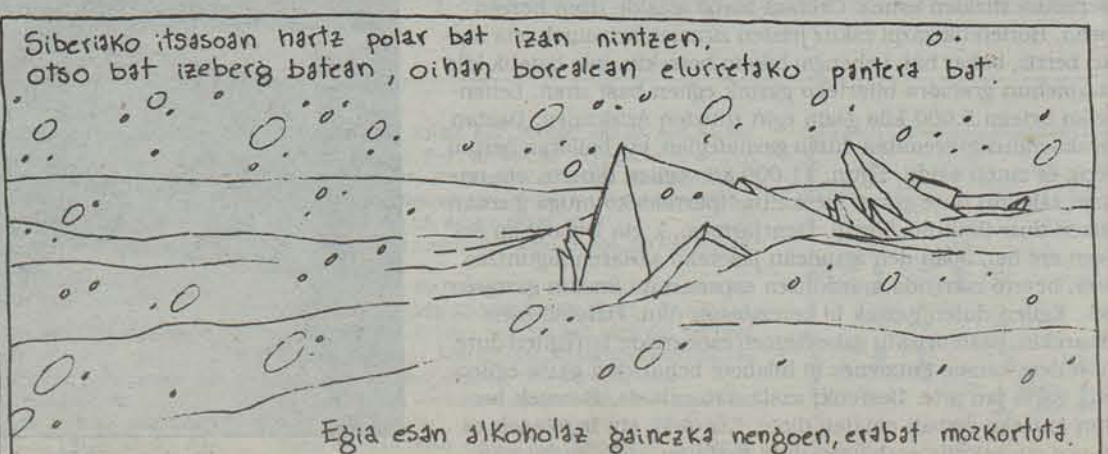 Siberiako itsasoan hartz polar bat izan nintzen,
otso bat izeberg batean, oihan borealean elurretako pantera bat.
Egia esan alkoholaz gainezka nengoen, erabat mozkortuta.